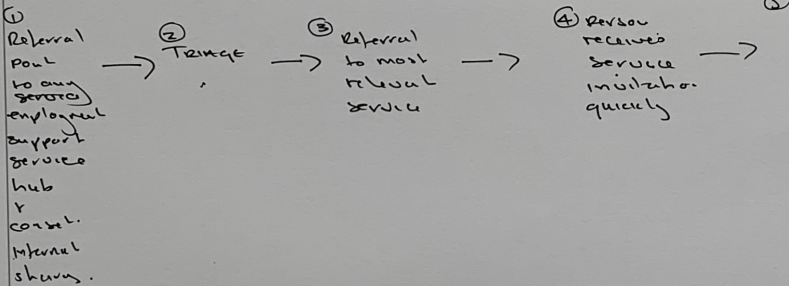 ①
Referral
point
to any
service
employment
support
service
hub
+
consent.
Internal
sharing.
②
TRIAGE
③
Referral
to most
relevant
service
④ Person
receives
service
invitation
quickly